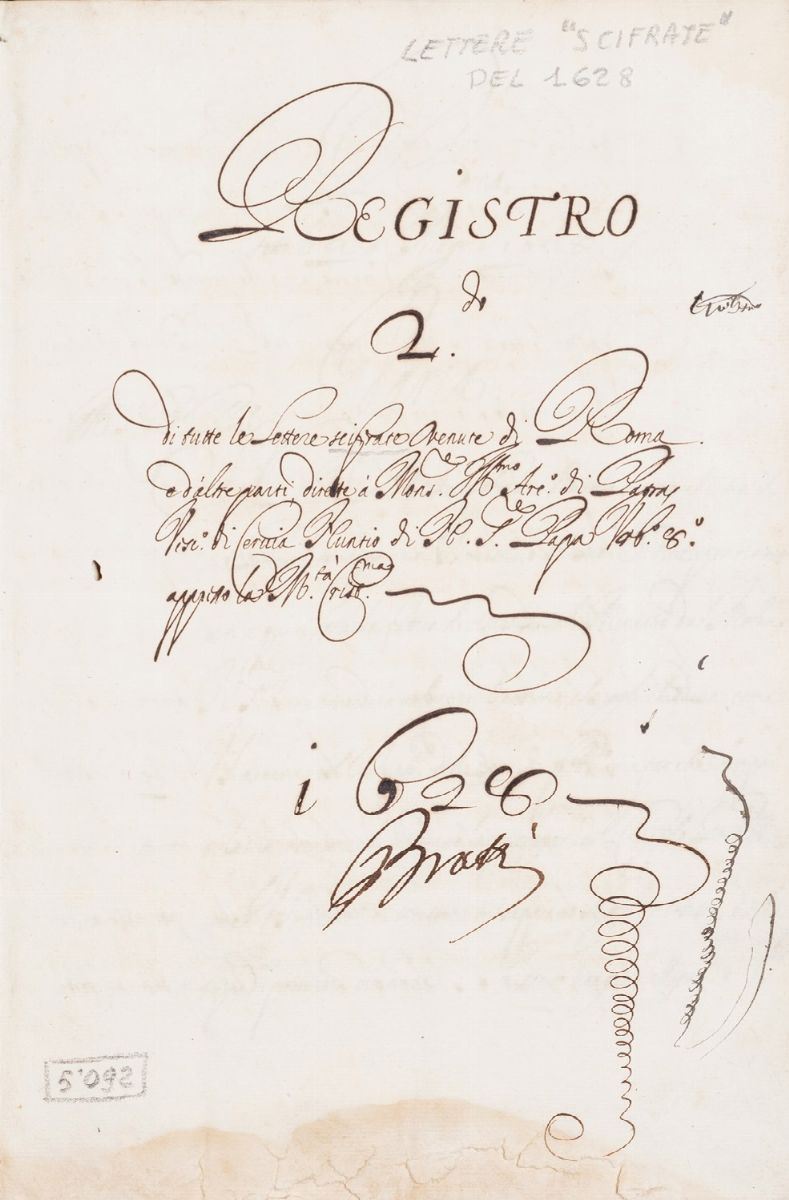 LETTERE "SCIFRATE"
DEL 1628
REGISTRO
2.do
di tutte le Lettere scifrate venute di Roma
e d'altre parti, dirette à Mons.re Ill.mo Are.o di Patras
Vesc.o di Cervia Nuntio di N. S.re Papa Urb.o 8.o
appresso la M.tà Crist.ma
1628
5.092